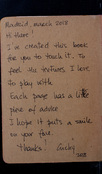 Madrid, march 2018
Hi there!
I've created this book
for you to touch it. To
feel the textures I love
to play with.
Each page has a little
piece of advice
I hope it puts a smile
on your face.
Thanks!